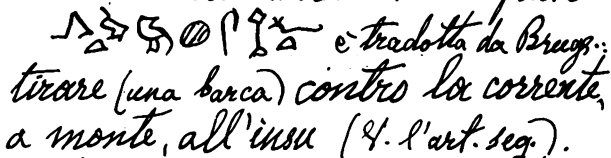 è tradotta da Brugs.:
tirare (una barca) contro la corrente,
a monte, all'insu (V. l'art. seg.).